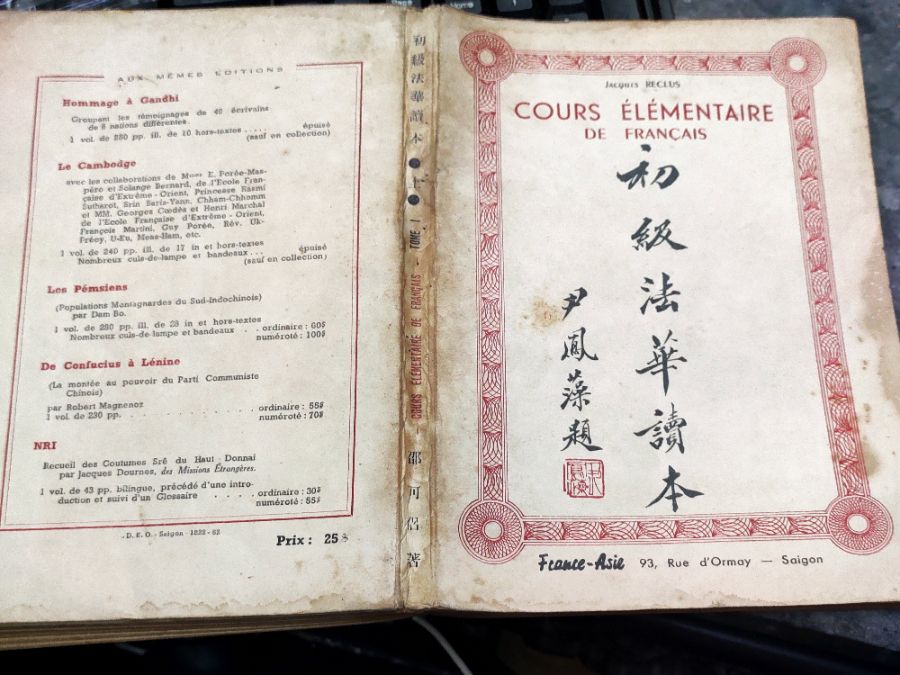 AUX MÊMES ÉDITIONS
Hommage à Gandhi
Groupant les témoignages de 46 écrivains
de 8 nations différentes.
1 vol. de 280 pp. ill. de 10 hors-textes ..... épuisé
(sauf en collection)
Le Cambodge
avec les collaborations de Mmes E. Porée-Mas-
péro et Solange Bernard, de l'Ecole Fran-
çaise d'Extrême-Orient, Princesse Rasmi
Sutharot, Srin Saris-Yann, Chham-Chhomm
et MM. Georges Cœdès et Henri Marchal
de l'Ecole Française d'Extrême-Orient,
François Martini, Guy Porée, Rév. Uk-
Frécy, U-Eu, Meas-Ham, etc.
1 vol. de 240 pp. ill. de 17 in et hors-textes
Nombreux culs-de-lampe et bandeaux ... épuisé
(sauf en collection)
Les Pémsiens
(Populations Montagnardes du Sud-Indochinois)
par Dam Bo.
1 vol. de 280 pp. ill. de 28 in et hors-textes
Nombreux culs-de-lampe et bandeaux . . ordinaire : 60$
numéroté : 100$
De Confucius à Lénine
(La montée au pouvoir du Parti Communiste
Chinois)
par Robert Magnenoz
1 vol. de 230 pp. . . . . . . . . . . . . . ordinaire : 58$
numéroté : 70$
NRI
Recueil des Coutumes Sré du Haut Donnai
par Jacques Dournes, des Missions Étrangères.
1 vol. de 43 pp. bilingue, précédé d'une intro-
duction et suivi d'un Glossaire . . . . ordinaire : 30$
numéroté : 55$
D. E. O. - Saigon
Prix : 25$
初級法華讀本 ● 上 ●
COURS ÉLÉMENTAIRE DE FRANÇAIS - TOME I
邵可侶著
Jacques RECLUS
COURS ÉLÉMENTAIRE
DE FRANÇAIS
初級法華讀本
尹鳳藻題
France-Asie 93, Rue d'Ormay — Saigon